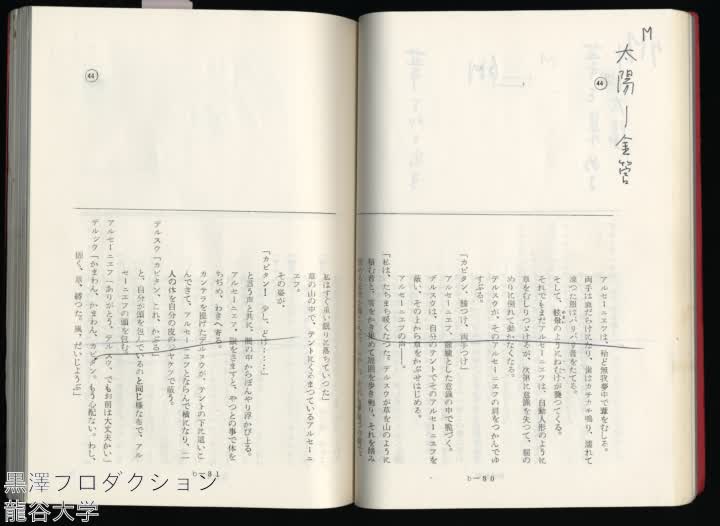 M
太陽ー金管
㊹
アルセーニエフは、殆ど無我夢中で葦をむしる。
両手は血だらけになり、歯はカチカチ鳴り、濡れて
凍つた服はバリバリ音をたてる。
そして、妖母のようにねむけが襲つてくる。
それでもまだアルセーニエフは、自動人形のように
草をむしりつづけるが、次第に意識を失つて、服の
めりに倒れて動かなくなる。
デルスウが、そのアルセーニエフの肩をつかんでゆ
すぶる。
「カピタン、膝つけ、両手つけ」
アルセーニエフ、朦朧とした意識の中で跪づく。
デルスウは、自分のテントでそのアルセーニエフを
蔽い、その上から草をかぶせはじめる。
アルセーニエフの声——。
「私は、たちまち暖くなつた。デルスウが草を山のように
積む音と、雪をかき集めて周囲を歩き廻り、それを踏み
b—80
㊹
私はすぐ重い眠りに落ちていつた」
草の山の中で、テントにくるまつているアルセーニ
エフ。
その姿が、
「カピタン！ 少し、どけ……」
と言う声と共に、闇の中からぼんやり浮かび上る。
アルセーニエフ、眼をさますと、やつとの事で体を
ちぢめ、わきへ寄る。
カンテラを提げたデルスウが、テントの下に這いこ
んできて、アルセーニエフとならんで横になり、二
人の体を自分の皮のジャケツで蔽う。
デルスウ「カピタン、これ、かぶる」
と、自分が頭を包んでいるのと同じ様な布で、アル
セーニエフの頭を包む。
アルセーニエフ「ありがとう、デルスウ、でもお前は大丈夫かい」
デルスウ「かまわん、かまわん、カピタン。もう心配ない。わし、
固く、草、縛つた。風、だいじようぶ」
b—81
黒澤プロダクション
龍谷大学